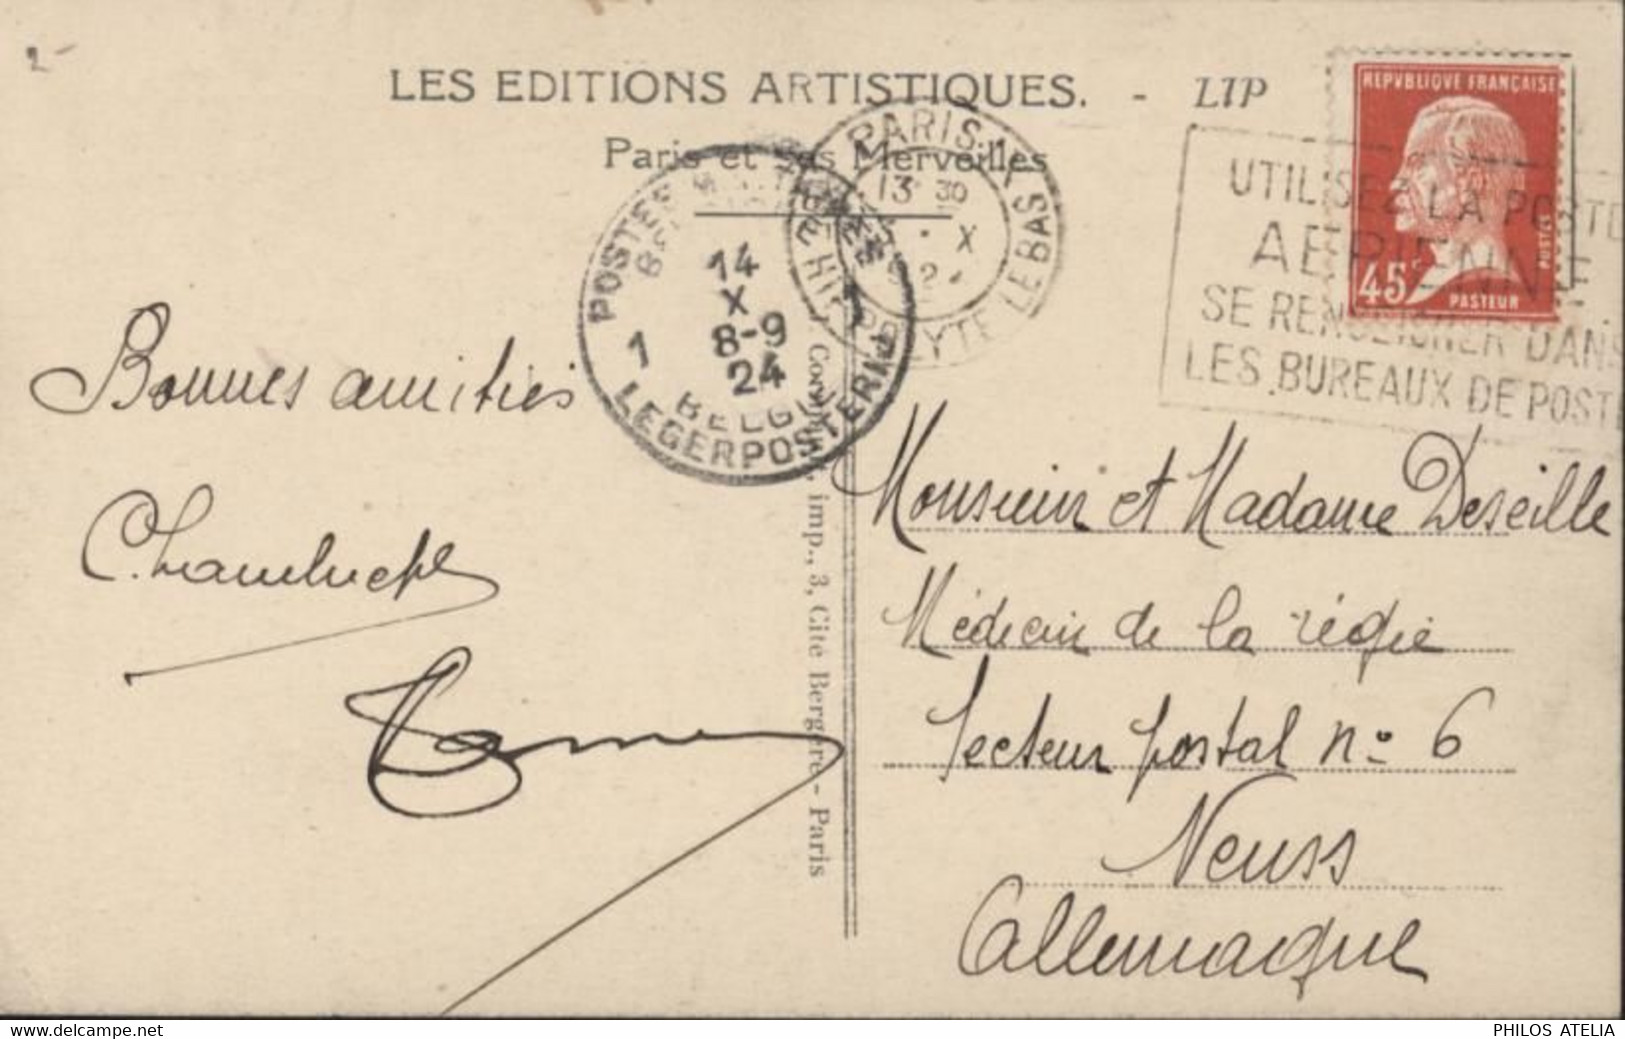 2-
LES EDITIONS ARTISTIQUES. - LIP
Paris et ses Merveilles
REPVBLIQUE FRANÇAISE
POSTES
45c
PASTEUR
PARIS. IX
13 30
X
HIPPOLYTE LEBAS
UTILISEZ LA POSTE
AERIENNE
SE RENSEIGNER DANS
LES BUREAUX DE POSTE
POSTES MILITAIRES
14
X
8-9
24
1 1
BELGIE
LEGERPOSTERIJ
Bonnes amitiés
Monsieur et Madame Deseille
Médecin de la régie
Secteur postal no 6
Neuss
Allemagne
imp., 3, Cité Bergère - Paris
www.delcampe.net
PHILOS ATELIA